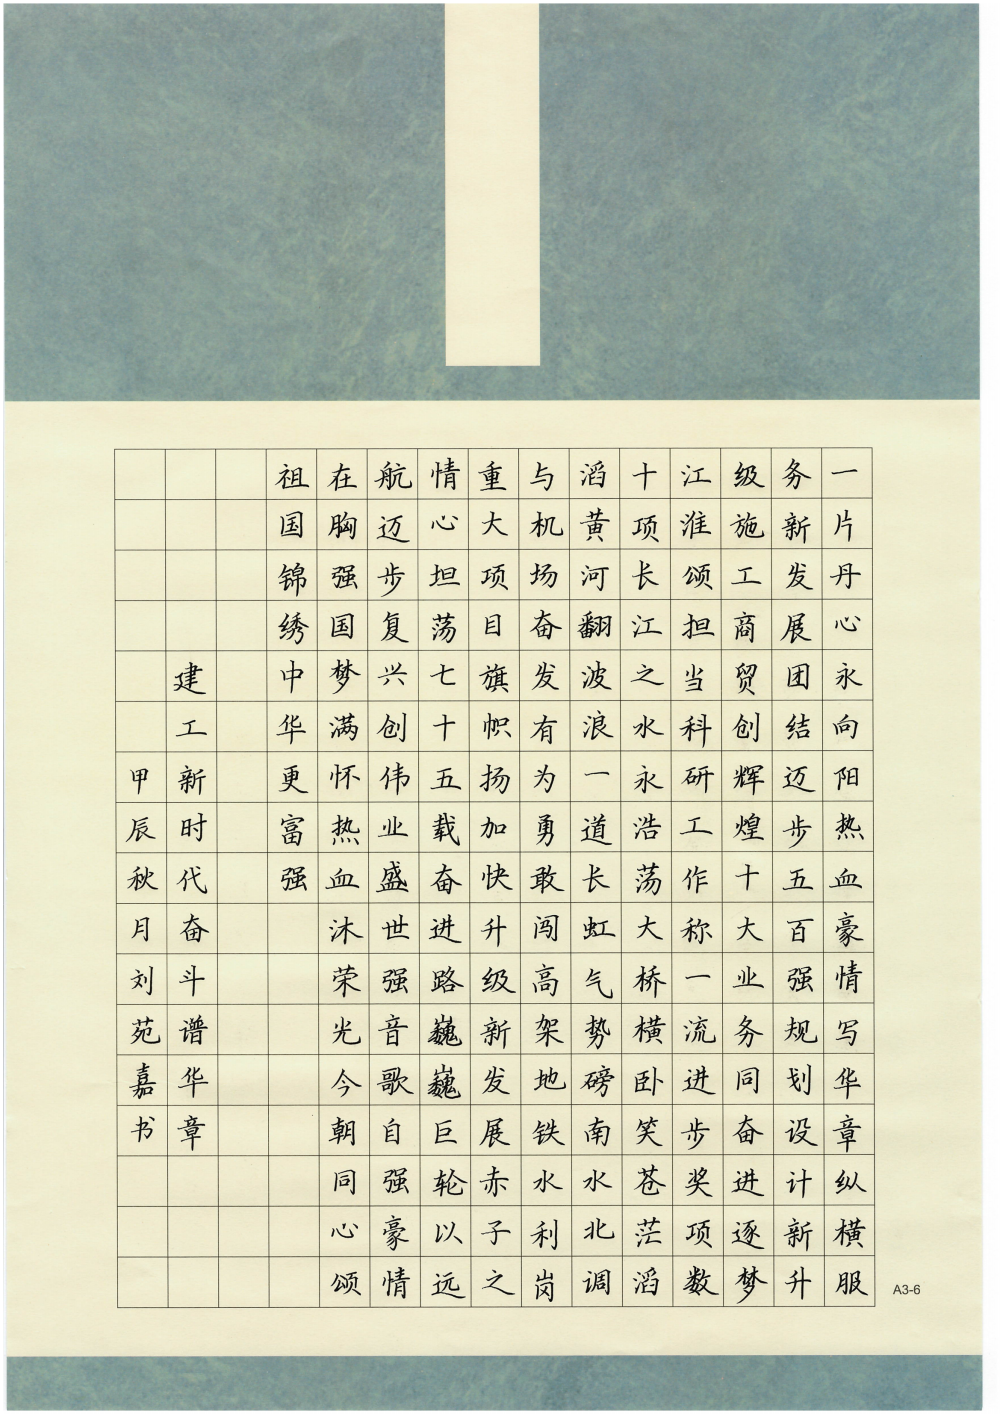 一片丹心永向阳热血豪情写华章纵横服
务新发展团结迈步五百强规划设计新升
级施工商贸创辉煌十大业务同奋进逐梦
江淮颂担当科研工作称一流进步奖项数
十项长江之水永浩荡大桥横卧笑苍茫滔
滔黄河翻波浪一道长虹气势磅南水北调
与机场奋发有为勇敢闯高架地铁水利岗
重大项目旗帜扬加快升级新发展赤子之
情心坦荡七十五载奋进路巍巍巨轮以远
航迈步复兴创伟业盛世强音歌自强豪情
在胸强国梦满怀热血沐荣光今朝同心颂
祖国锦绣中华更富强
建工新时代奋斗谱华章
甲辰秋月刘苑嘉书
A3-6